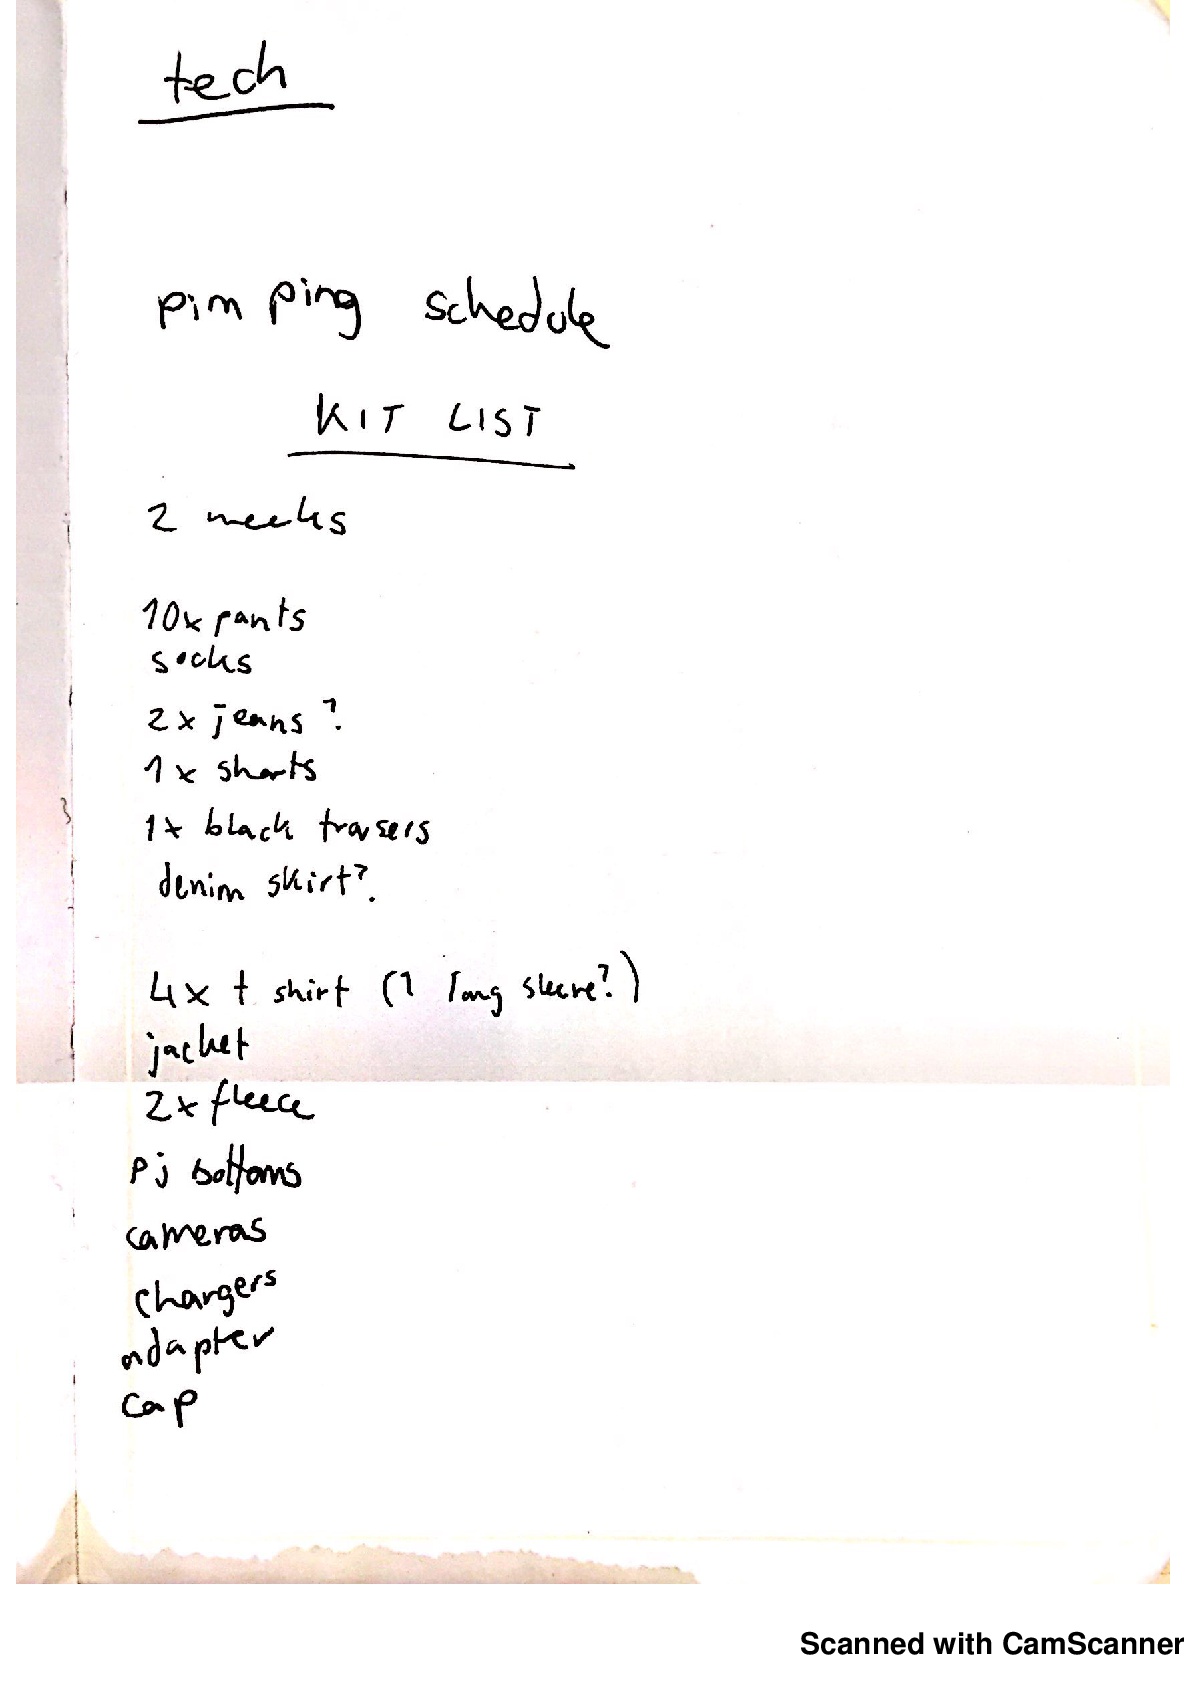 tech
pimping schedule
KIT LIST
2 weeks
10x pants
socks
2x jeans?
1x shorts
1x black trousers
denim skirt?
4x t shirt (1 long sleeve?)
jacket
2x fleece
Pj bottoms
cameras
chargers
adapter
cap
Scanned with CamScanner